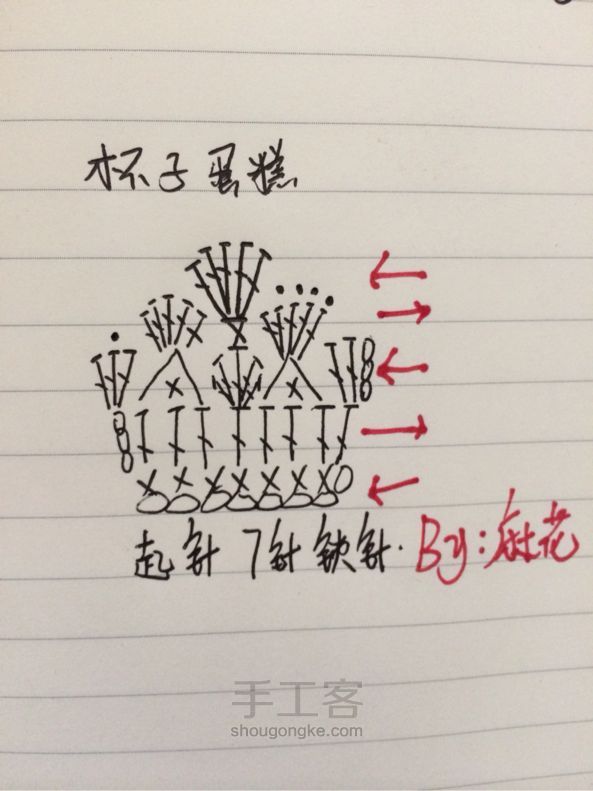 杯子蛋糕
起针7针锁针. By:麻花
手工客
shougongke.com